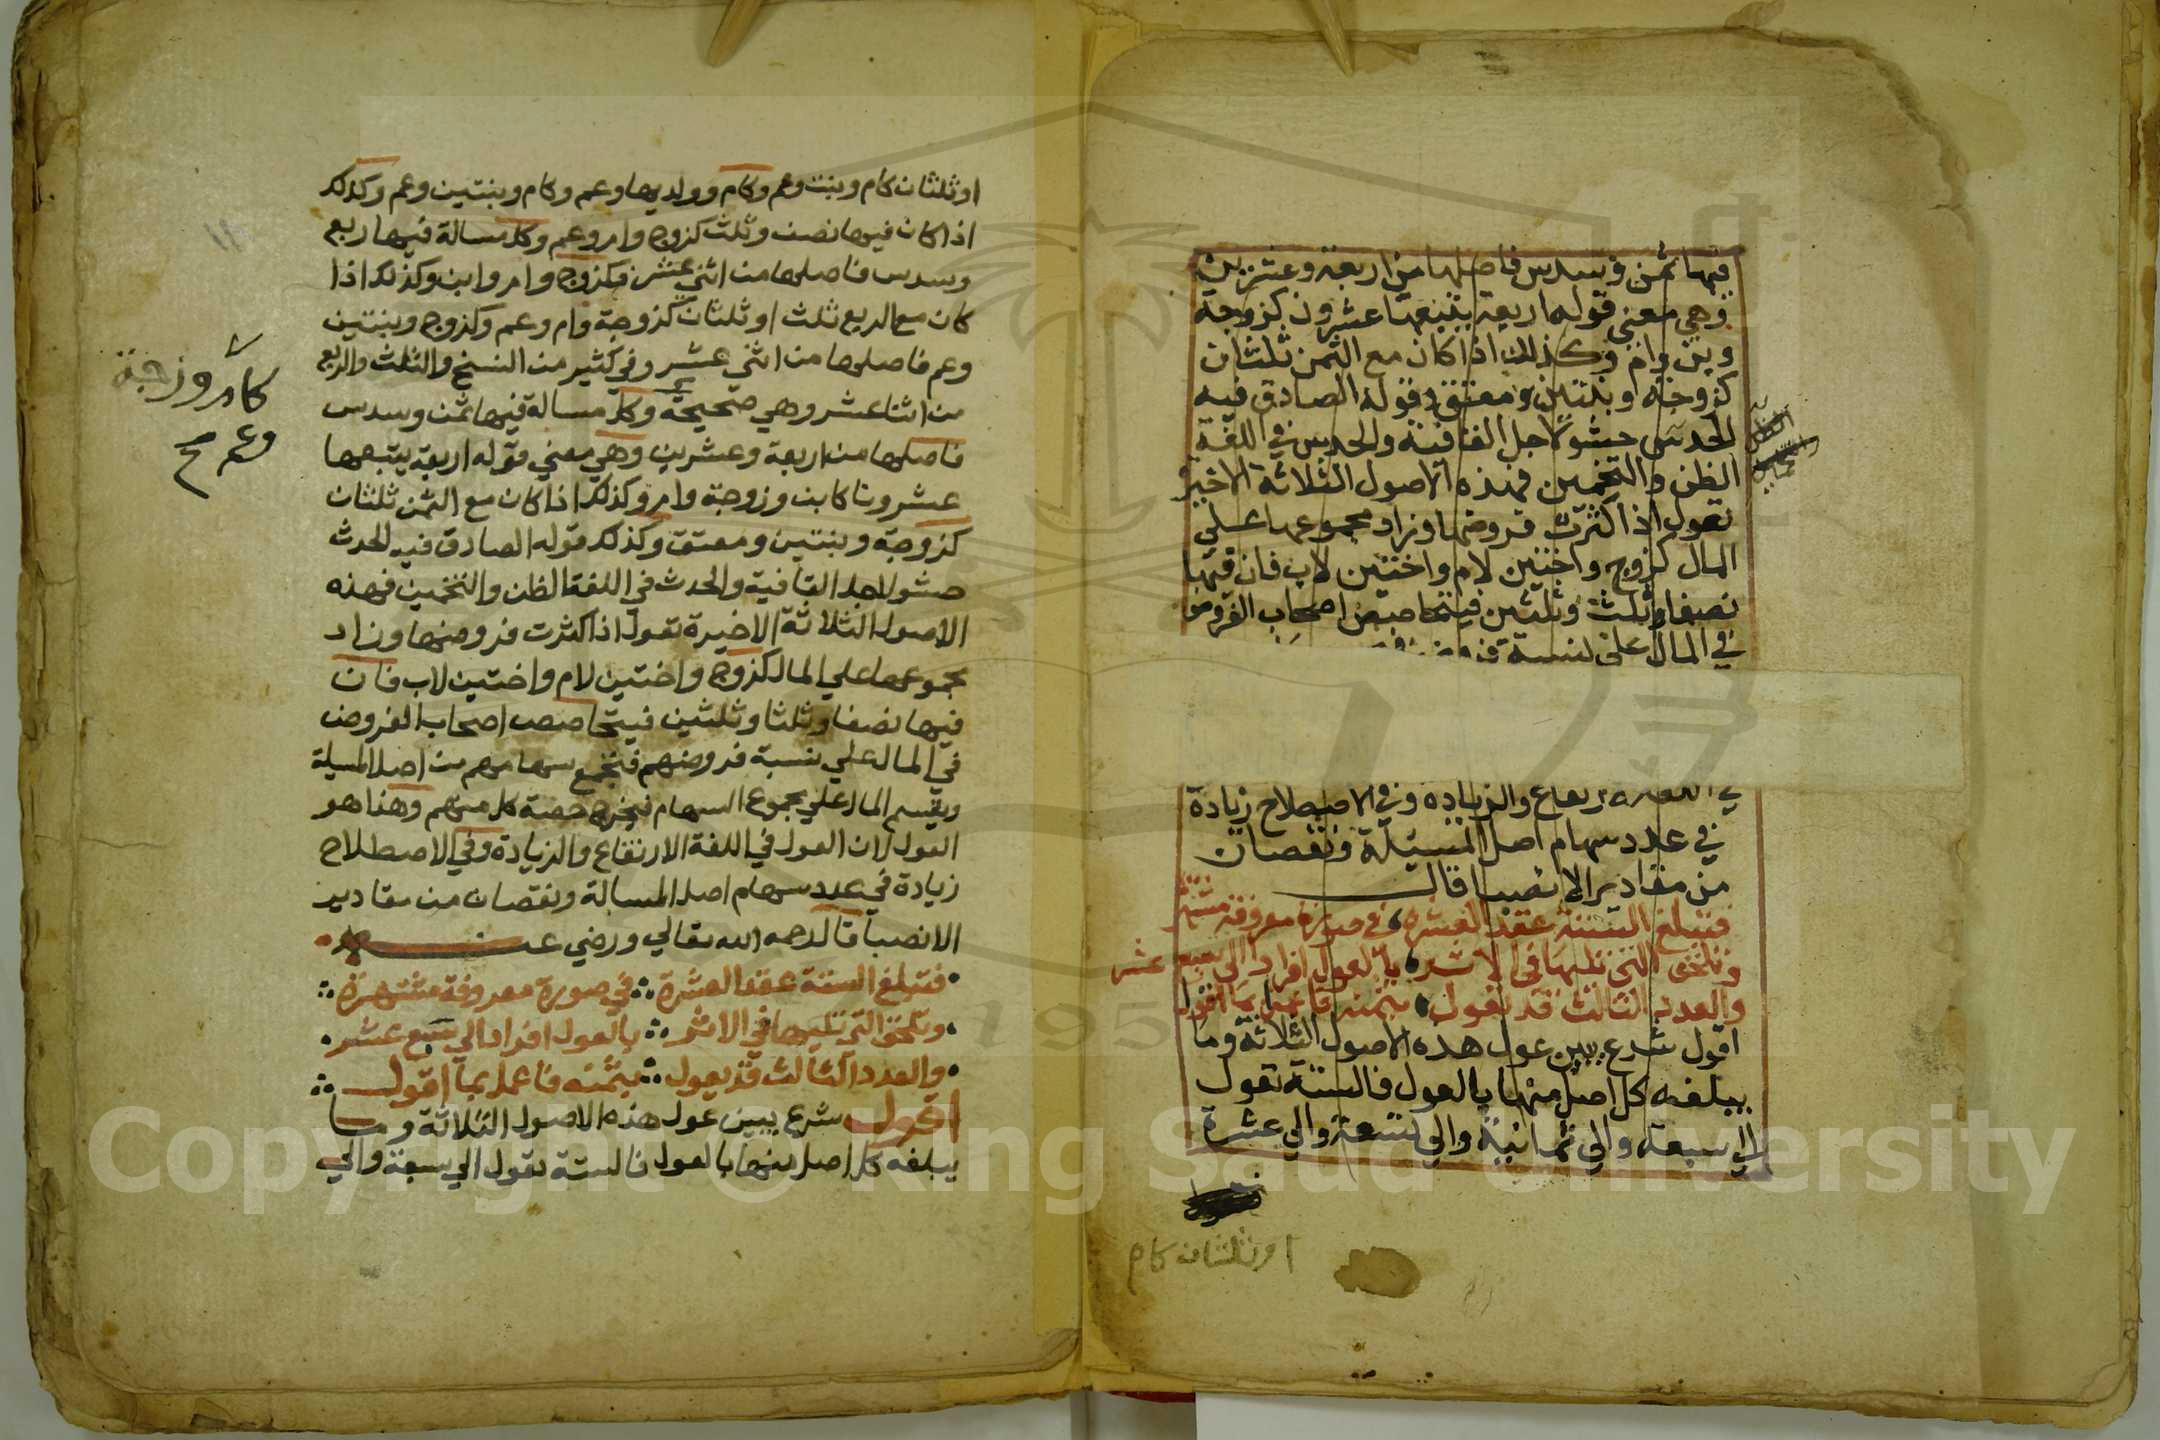 فيها ثمن وسدس فاصلها من اربعة وعشرين
وهي معني قوله اربعة يتبعها عشرون كزوجة
وبن وام وكذلك اذا كان مع الثمن ثلثان
كزوجة وبنتين ومعتق وقوله الصادق فيه
الحدس حشو لاجل القافية والحدس في اللغة
الظن والتخمين فهذه الاصول الثلاثة الاخيرة
تعول اذا كثرت فروضها وزاد مجموعها علي
المال كزوج واختين لام واختين لاب فان فيها
نصفا وثلث وثلثين فيتحاصص اصحاب الفروض
في المال علي نسبة
والزيادة وفي الاصطلاح زيادة
في عدد سهام اصل المسيلة ونقصان
من مقادير الانصبا قال
فتبلغ الستة عقد العشره في صورة معروفة مشتهره
وتلحق التي تليها في الاثر بالعول افرادا الي سبع عشر
والعدد الثالث قد يعول بثمنه فاعمل بما اقول
اقول شرع يبين عول هذه الاصول الثلاثة وما
يبلغه كل اصل منها بالعول فالستة تعول
الي سبعة والي ثمانية والي تسعة والي عشرة
او ثلثان كام
او ثلثان كام وبنت وعم وكام وولديها وعم وكام وبنتين وعم وكذلك
اذا كان فيها نصف وثلث كزوج وام وعم وكل مسالة فيها ربع
وسدس فاصلها من اثني عشر كزوج وام وابن وكذلك اذا
كان مع الربع ثلث او ثلثان كزوجة وام وعم وكزوج وبنتين
وعم فاصلها من اثني عشر وفي كثير من النسخ والثلث والربع
من اثنا عشر وهي صحيحة وكل مسالة فيها ثمن وسدس
فاصلها من اربعة وعشرين وهي معني قوله اربعة يتبعها
عشرونا كابن وزوجة وام وكذلك اذا كان مع الثمن ثلثان
كزوجة وبنتين ومعتق وكذلك قوله الصادق فيه الحدث
حشو لاجل القافية والحدث في اللغة الظن والتخمين فهذه
الاصول الثلاثة الاخيرة تعول اذا كثرت فروضها وزاد
مجموعها علي المال كزوج واختين لام واختين لاب فان
فيها نصفا وثلثا وثلثين فيتحاصص اصحاب الفروض
في المال علي نسبة فروضهم فتجمع سهامهم من اصل المسيلة
ويقسم المال علي مجموع السهام فيخرج حصة كل منهم وهذا هو
العول لان العول في اللغة الارتفاع والزيادة وفي الاصطلاح
زيادة في عدد سهام اصل المسالة ونقصان من مقادير
الانصبا قال رحمه الله تعالي ورضي عنه
فتبلغ الستة عقد العشرة في صورة معروفة مشتهرة
وتلحق التي تليها في الاثر بالعول افرادا الي سبع عشر
والعدد الثالث قد يعول بثمنه فاعمل بما اقول
اقول شرع يبين عول هذه الاصول الثلاثة وما
يبلغه كل اصل منها بالعول فالستة تعول الي سبعة والي
كام وزوجة
وعم صح
Copyright © King Saud University